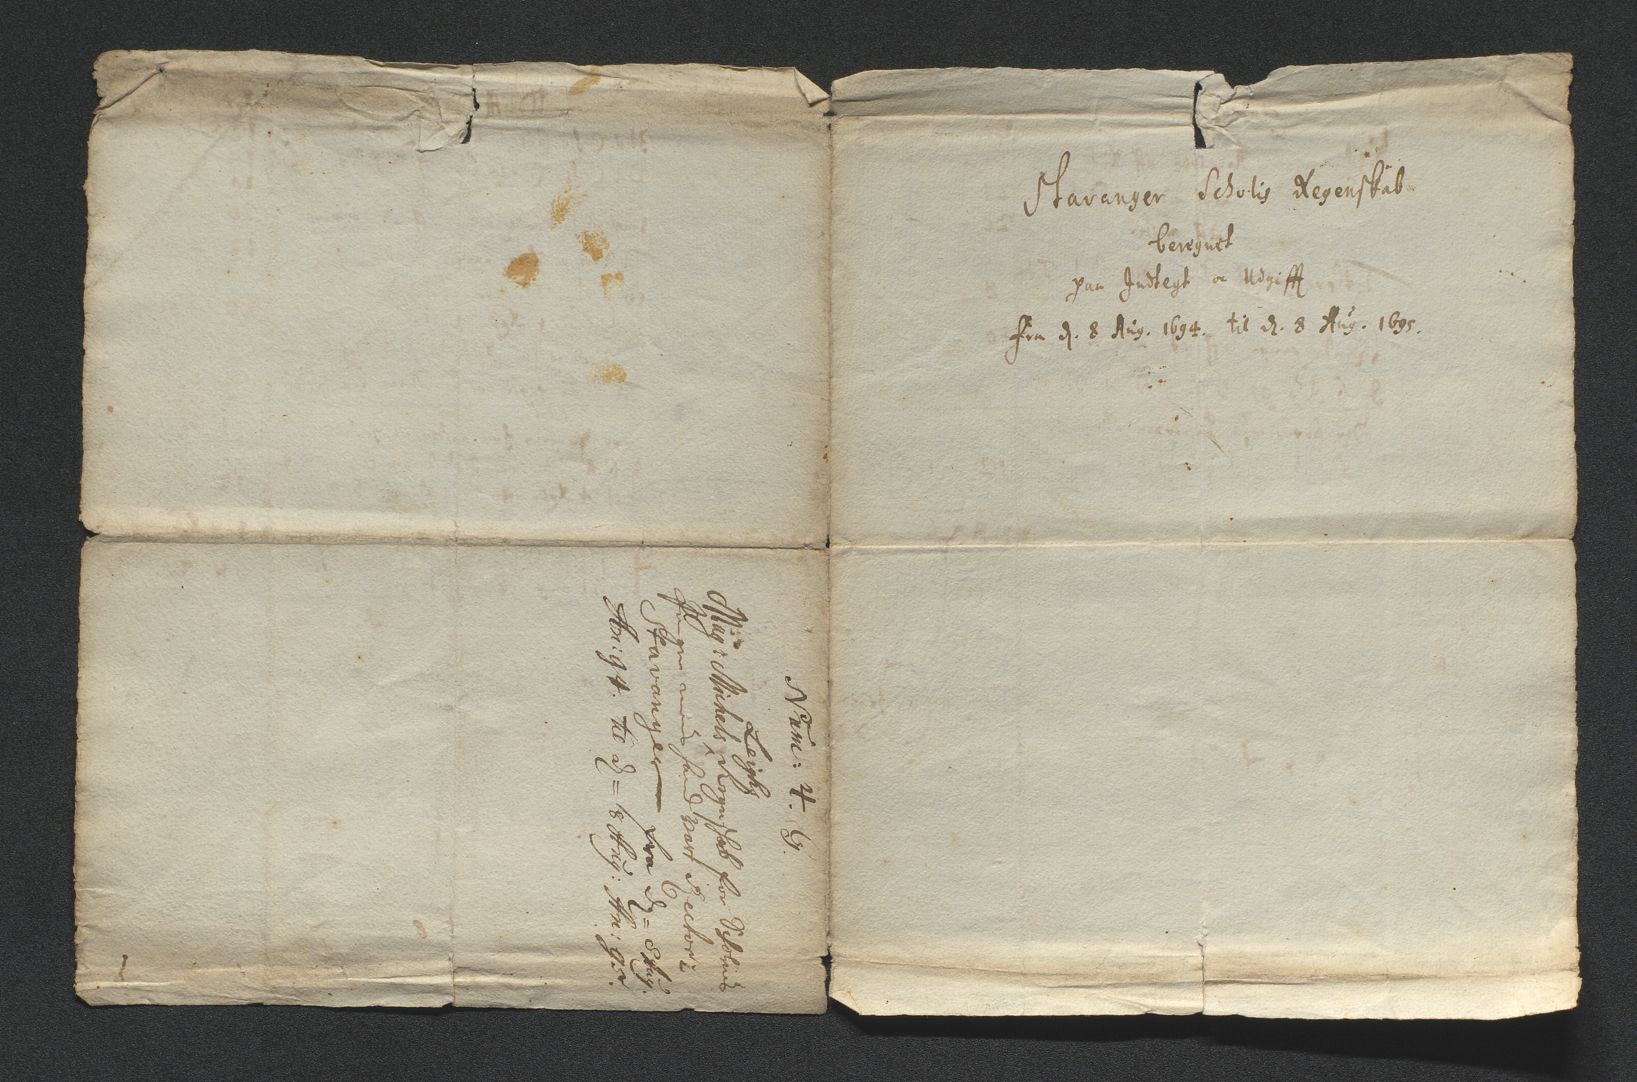 Stavanger Scholis Regenskab
beregnet
paa Indtegt oc Udgifft
fra d. 8 Aug. 1694. til d. 8 Aug. 1695.
Num: 4. G.
Leighs
Mag: Michels Regenskab for Scholen
hand var Rector i
Stavanger fra d = 8 Aug:
An: 94. til d = 8 Aug: An: 95.